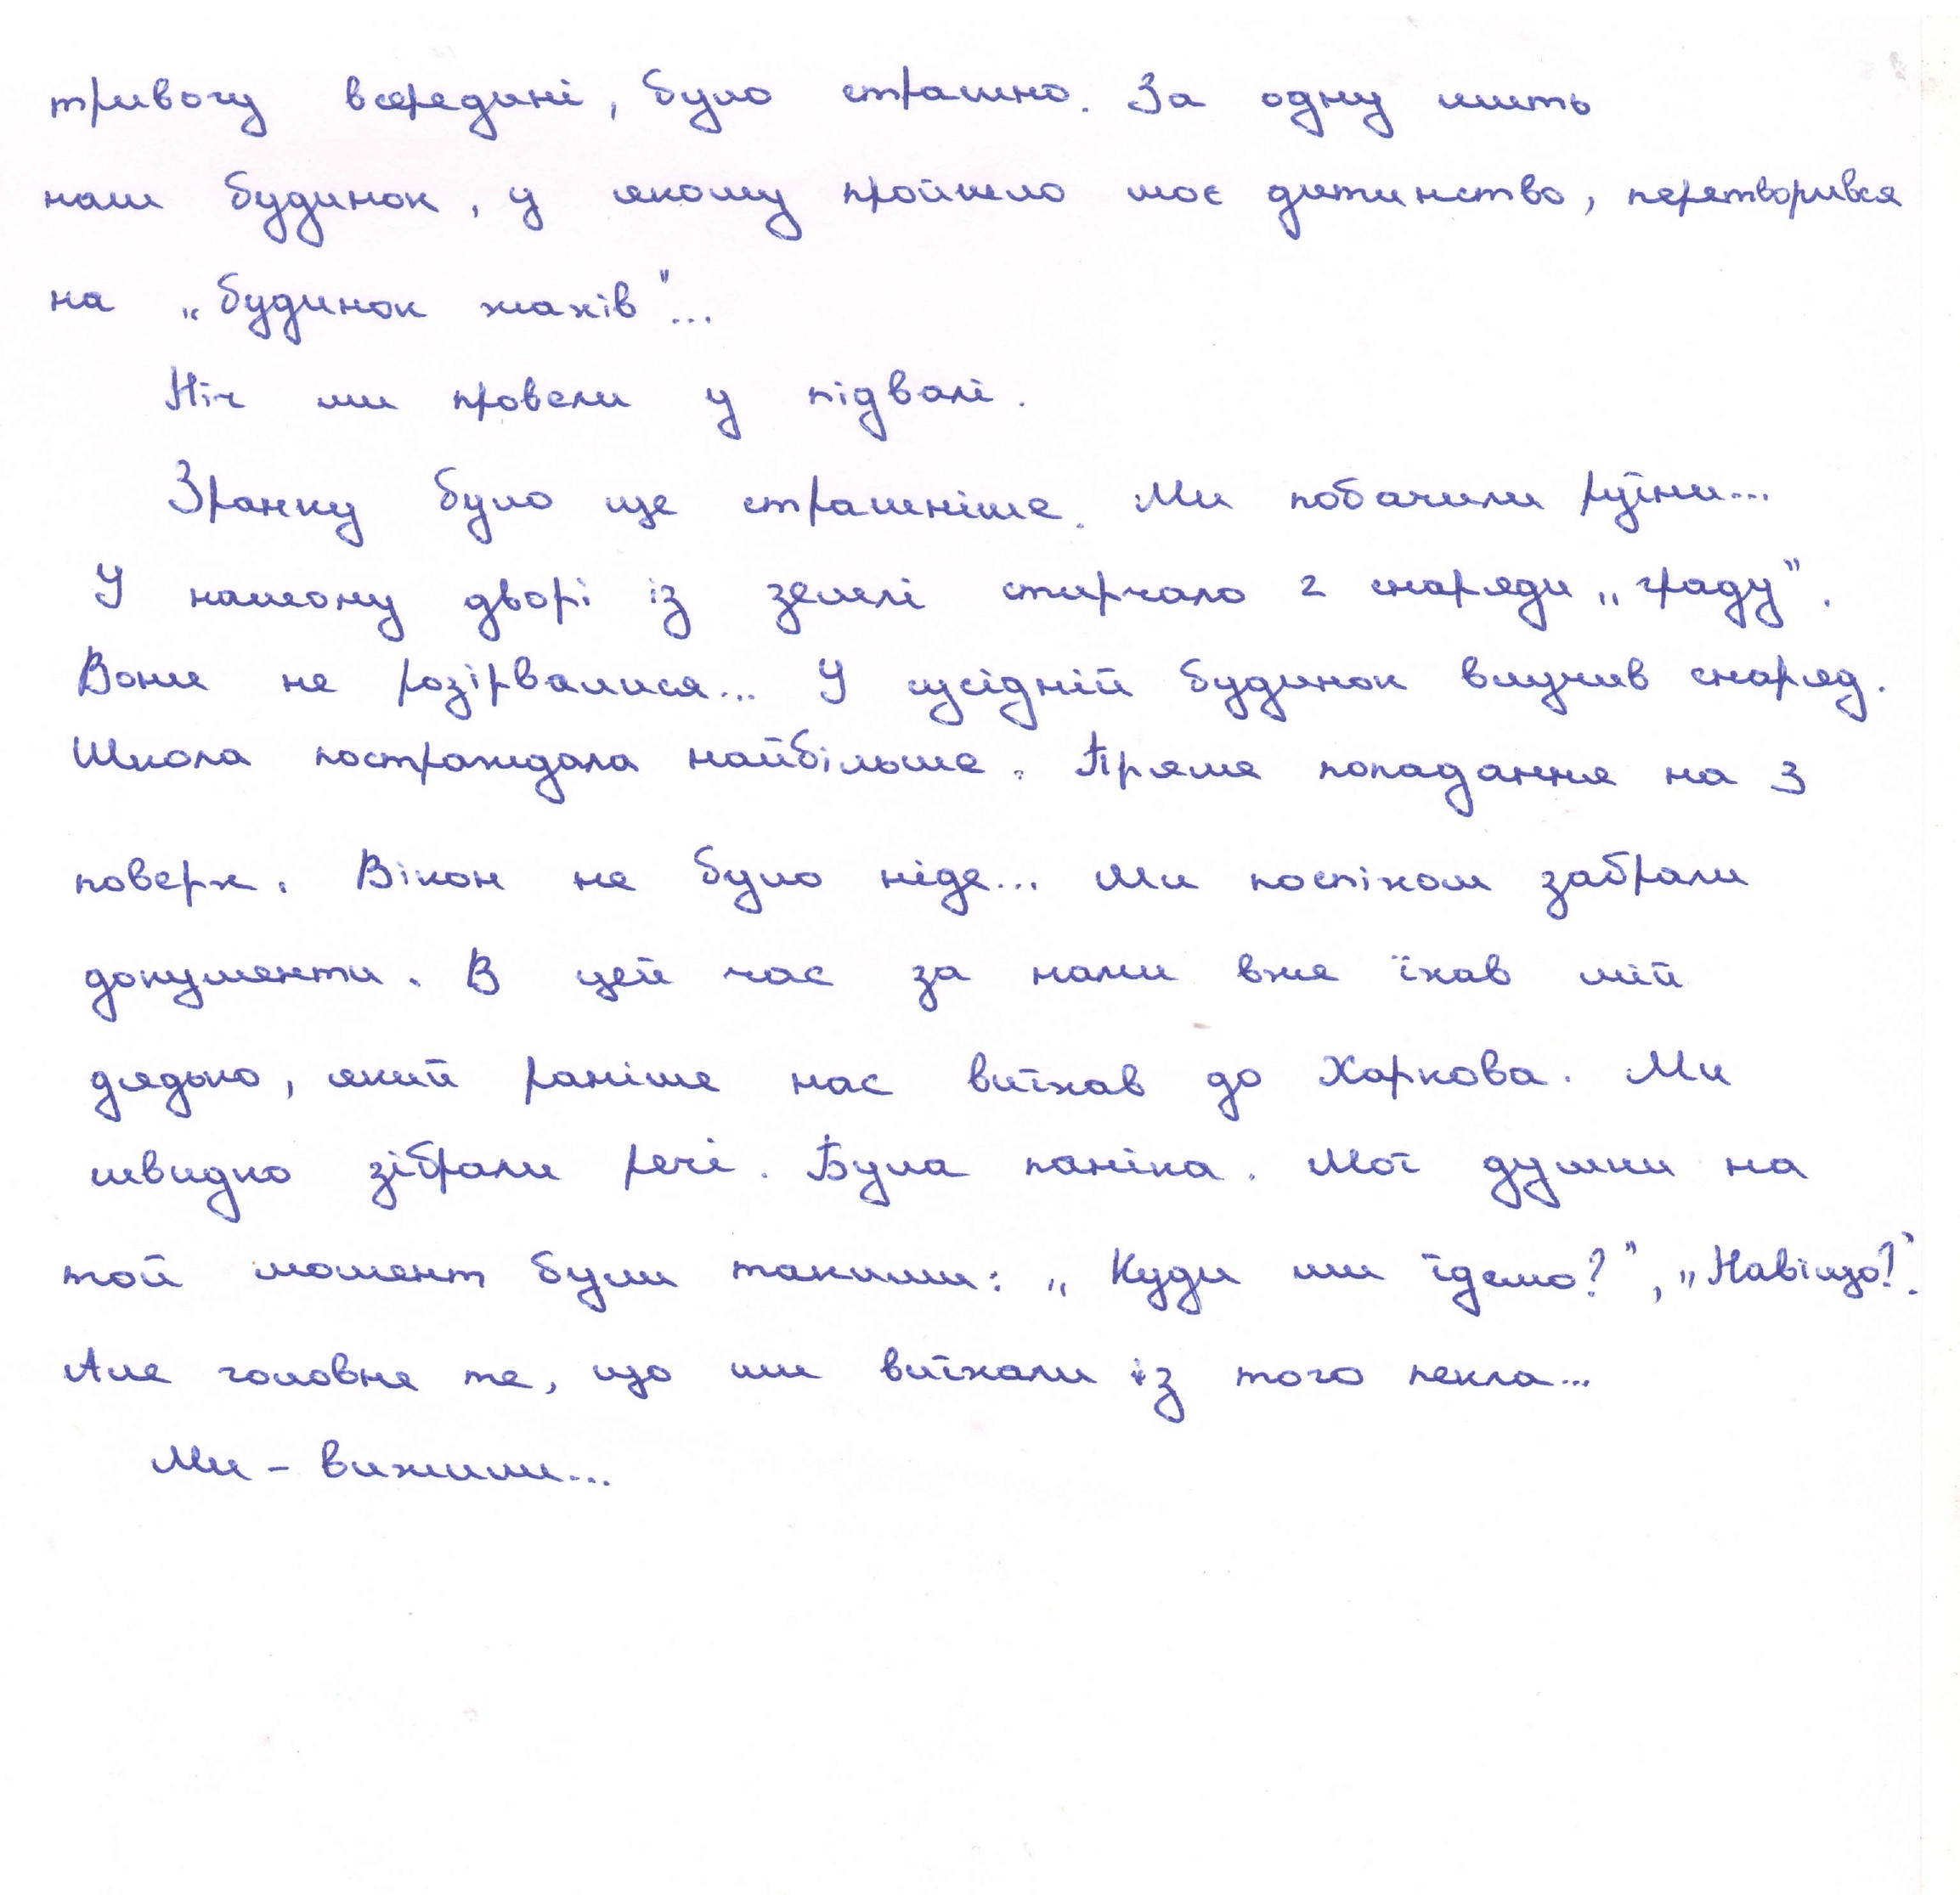 тривогу всередині, було страшно. За одну мить
наш будинок, у якому пройшло моє дитинство, перетворився
на „будинок жахів"...
Ніч ми провели у підвалі.
Зранку було ще страшніше. Ми побачили руїни...
У нашому дворі із землі стирчало 2 снаряди „граду".
Вони не розірвалися... У сусідній будинок влучив снаряд.
Школа постраждала найбільше. Пряме попадання на 3
поверх. Вікон не було ніде... Ми поспіхом забрали
документи. В цей час за нами вже їхав мій
дядько, який раніше нас виїхав до Харкова. Ми
швидко зібрали речі. Була паніка. Мої думки на
той момент були такими: „Куди ми їдемо?", „Навіщо?".
Але головне те, що ми виїхали із того пекла...
Ми – вижили...